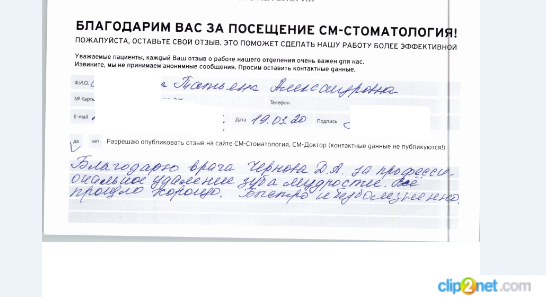 БЛАГОДАРИМ ВАС ЗА ПОСЕЩЕНИЕ СМ-СТОМАТОЛОГИЯ!
ПОЖАЛУЙСТА, ОСТАВЬТЕ СВОЙ ОТЗЫВ. ЭТО ПОМОЖЕТ СДЕЛАТЬ НАШУ РАБОТУ БОЛЕЕ ЭФФЕКТИВНОЙ
Уважаемые пациенты, каждый Ваш отзыв о работе нашего отделения очень важен для нас.
Извините, мы не принимаем анонимные сообщения. Просим оставить контактные данные.
Ф.И.О. Татьяна Александровна
№ Карты Телефон
E-mail Дата 19.01.20 Подпись
да нет Разрешаю опубликовать отзыв на сайте СМ-Стоматология, СМ-Доктор (контактные данные не публикуются!)
Благодарю врача Чернова Д.А. за професси-
ональное удаление зуба мудрости. Всё
прошло хорошо. Быстро и безболезненно.
clip2net.com